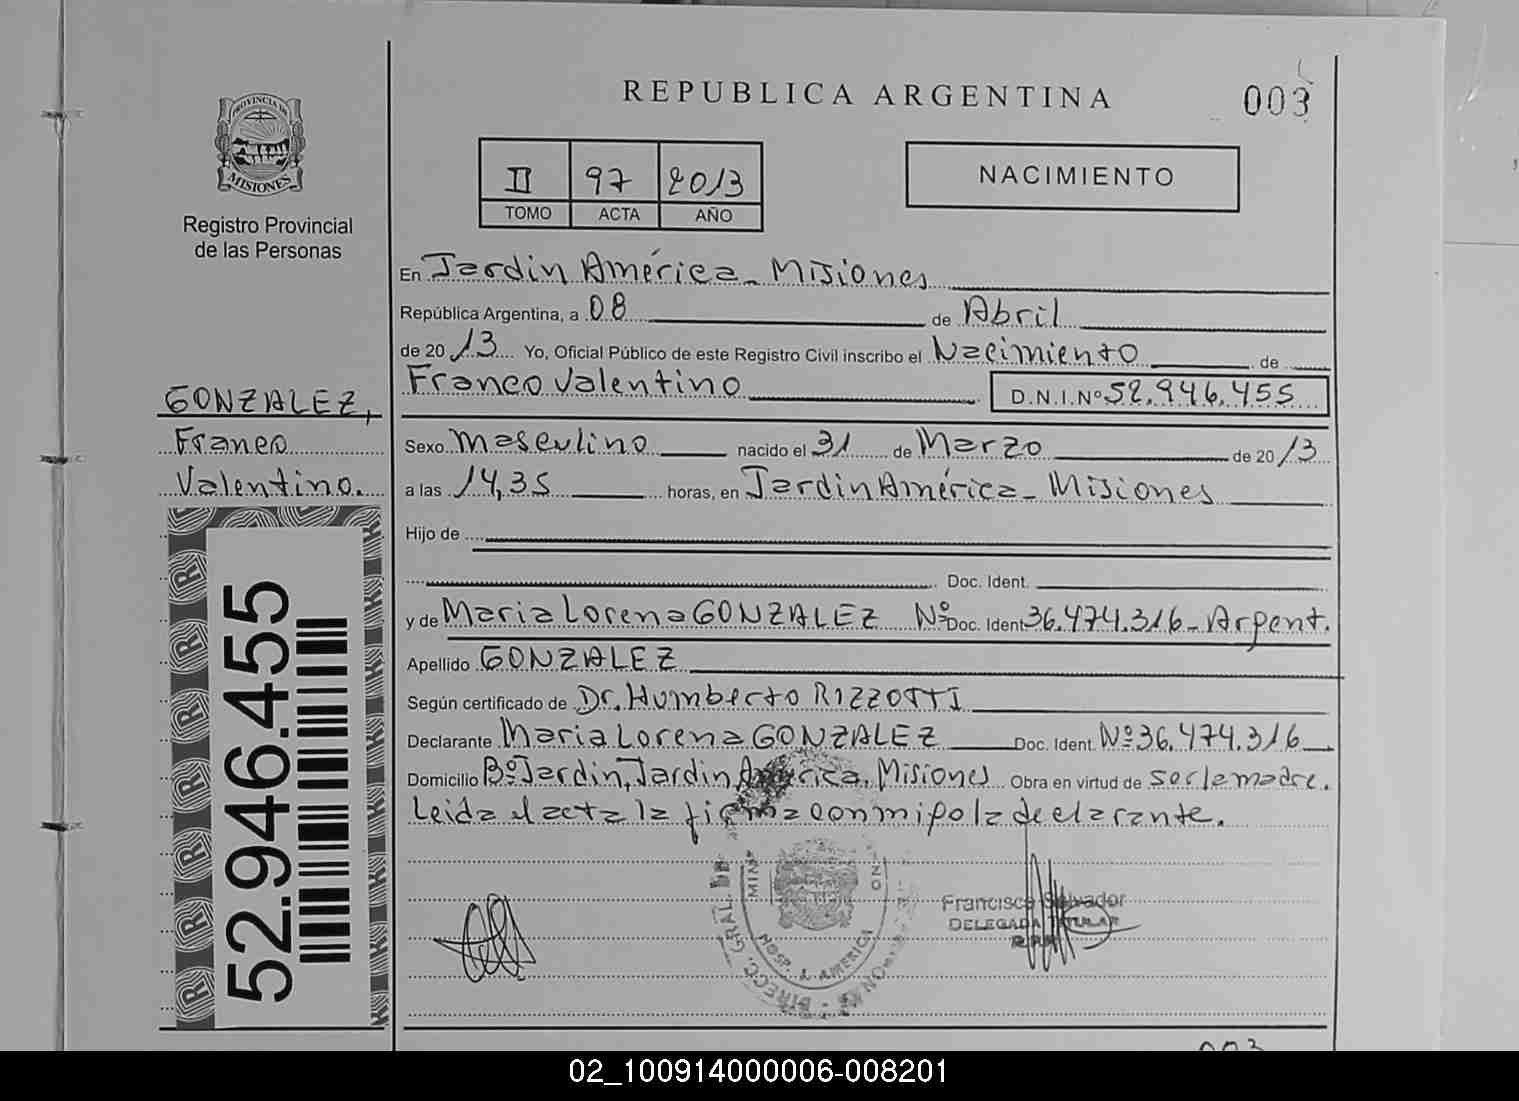 REPUBLICA ARGENTINA
003
PROVINCIA DE
MISIONES
Registro Provincial
de las Personas
II 97 2013
TOMO ACTA AÑO
NACIMIENTO
En Jardin América - Misiones
República Argentina, a 08 de Abril
de 2013 Yo, Oficial Público de este Registro Civil inscribo el Nacimiento de
Franco Valentino D.N.I.Nº 52.946.455
GONZALEZ,
Franco
Valentino.
Sexo masculino nacido el 31 de Marzo de 2013
a las 14,35 horas, en Jardin América - Misiones
Hijo de
Doc. Ident.
y de Maria Lorena GONZALEZ Nº Doc. Ident 36.474.316 - Argent.
Apellido GONZALEZ
Según certificado de Dr. Humberto RIZZOTTI
Declarante Maria Lorena GONZALEZ Doc. Ident. Nº 36.474.316
Domicilio Bº Jardin, Jardin América, Misiones Obra en virtud de ser la madre.
Leida el acta la firma conmipo la declarante.
52.946.455
DIRECC. GRAL. DE
HOSP. J. AMERICA
Francisco Salvador
DELEGADA TITULAR
R.P.P.
003
02_100914000006-008201